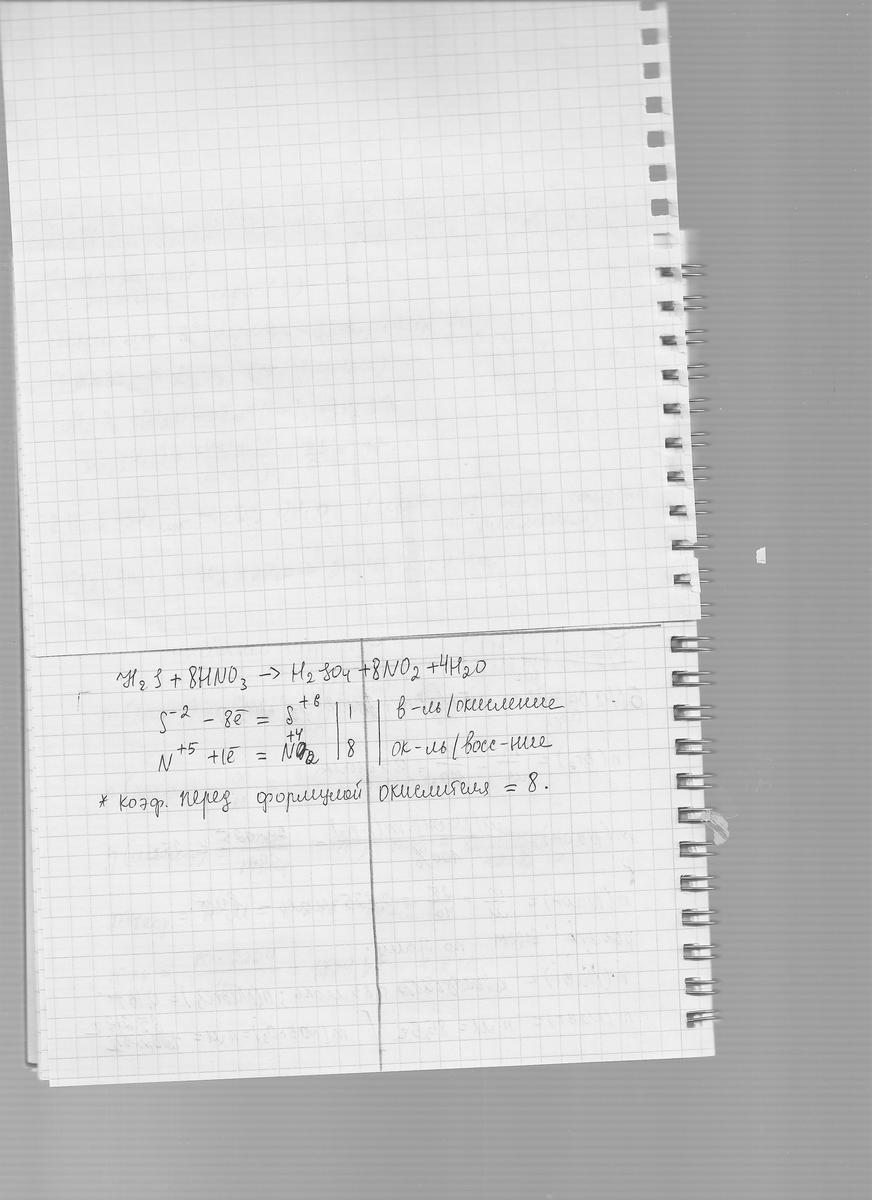 H₂S + 8HNO₃ → H₂SO₄ + 8NO₂ + 4H₂O
S⁻² − 8ē = S⁺⁶ | 1 | в-ль/окисление
N⁺⁵ + 1ē = N⁺⁴O₂ | 8 | ок-ль/восс-ние
* коэф. перед формулой окислителя = 8.